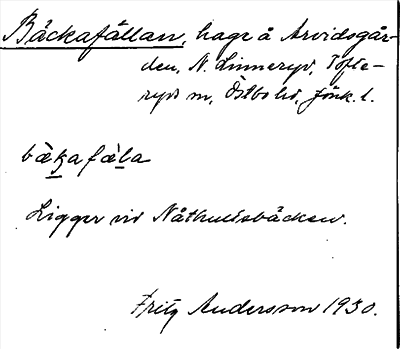 Bäckafällan, hage å Arvidsgår-
den, N. Linneryd, Tofte-
ryds sn, Östbo hd, Jönk. l.
bæ̀ḵa fæ̀ḻa
Ligger vid Nåthultsbäcken.
Fritz Andersson 1930.